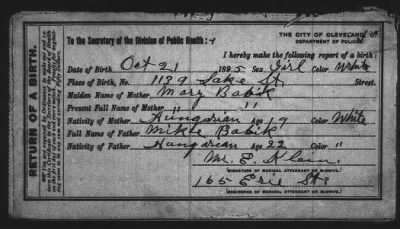 To the Secretary of the Division of Public Health:
THE CITY OF CLEVELAND
DEPARTMENT OF POLICE
I hereby make the following report of a birth:
Date of Birth Oct 21 1895 Sex, Girl Color White
Place of Birth, No. 1139 Lake St. Street.
Maiden Name of Mother Mary Babik
Present Full Name of Mother " "
Nativity of Mother Hungarian Age 19 Color White
Full Name of Father Mikle Babik
Nativity of Father Hungarian Age 22 Color "
Mr. E. Klein.
(SIGNATURE OF MEDICAL ATTENDANT OR MIDWIFE.)
165 Erie St.
(RESIDENCE OF MEDICAL ATTENDANT OR MIDWIFE.)
RETURN OF A BIRTH.